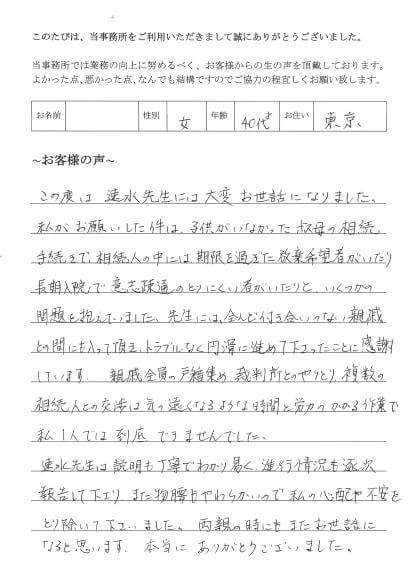 このたびは、当事務所をご利用いただきまして誠にありがとうございました。
当事務所では業務の向上に努めるべく、お客様からの生の声を頂戴しております。
よかった点、悪かった点、なんでも結構ですのでご協力の程宜しくお願い致します。
お名前 性別 女 年齢 40代才 お住い 東京
~お客様の声~
この度は 速水先生には大変お世話になりました。
私がお願いした件は、子供がいなかった叔母の相続
手続きで、相続人の中には期限を過ぎた放棄希望者がいたり
長期入院で意志疎通のとりにくい者がいたりと、いくつかの
問題を抱えていました。先生には、全んど付き合いのない親戚
との間にも入って頂き、トラブルなく円滑に進めて下さったことに感謝
しています。親戚全員の戸籍集め、裁判所とのやりとり、複数の
相続人との交渉は気の遠くなるような時間と労力のかかる作業で
私1人では到底できませんでした。
速水先生は説明も丁寧でわかり易く、進行情況も逐次
報告して下さり、また物腰もやわらかいので私の心配や不安を
とり除いて下さいました。両親の時にもまたお世話に
なると思います。本当にありがとうございました。